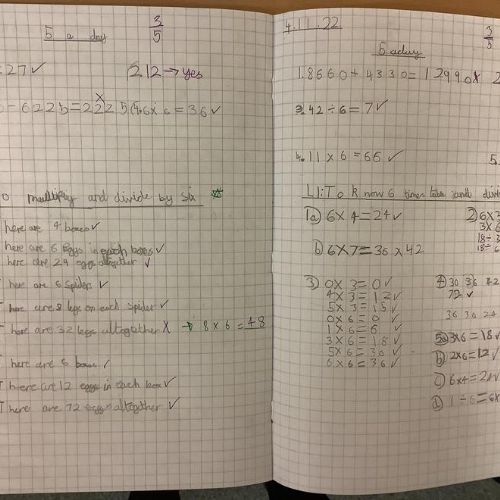 5 a day
3/5
:27 ✓
212 → yes
- 6225 = 2225
5(4.6 x 6 = 36 ✓
multiply and divide by six
here are 4 boxes ✓
here are 6 eggs in each boxes ✓
here are 24 eggs altogether ✓
here are 6 spiders ✓
here are 8 legs on each spider ✓
There are 32 legs altogether x → 8 x 6 = 48
There are 6 boxes ✓
There are 12 eggs in each box ✓
There are 72 eggs altogether ✓
4.11.22
3/5
5 aday
1. 8660 + 4330 = 12990 x
3. 42 ÷ 6 = 7 ✓
4. 11 x 6 = 66 ✓
5.
L1: To know 6 times table and divid
1a) 6 x 4 = 24 ✓
2) 6 x 3
3 x 6
18 ÷ 3
18 ÷ 6
b) 6 x 7 = 36 x 42
3) 0 x 3 = 0 ✓
4 x 3 = 12 ✓
5 x 3 = 15 ✓
0 x 6 = 0 ✓
1 x 6 = 6 ✓
3 x 6 = 18 ✓
5 x 6 = 30 ✓
6 x 6 = 36 ✓
4) 30 36
72 ✓
36 30 24
5a) 3 x 6 = 18 ✓
b) 2 x 6 = 12 ✓
c) 6 x 4 = 24
d) 1 ÷ 6 = 6